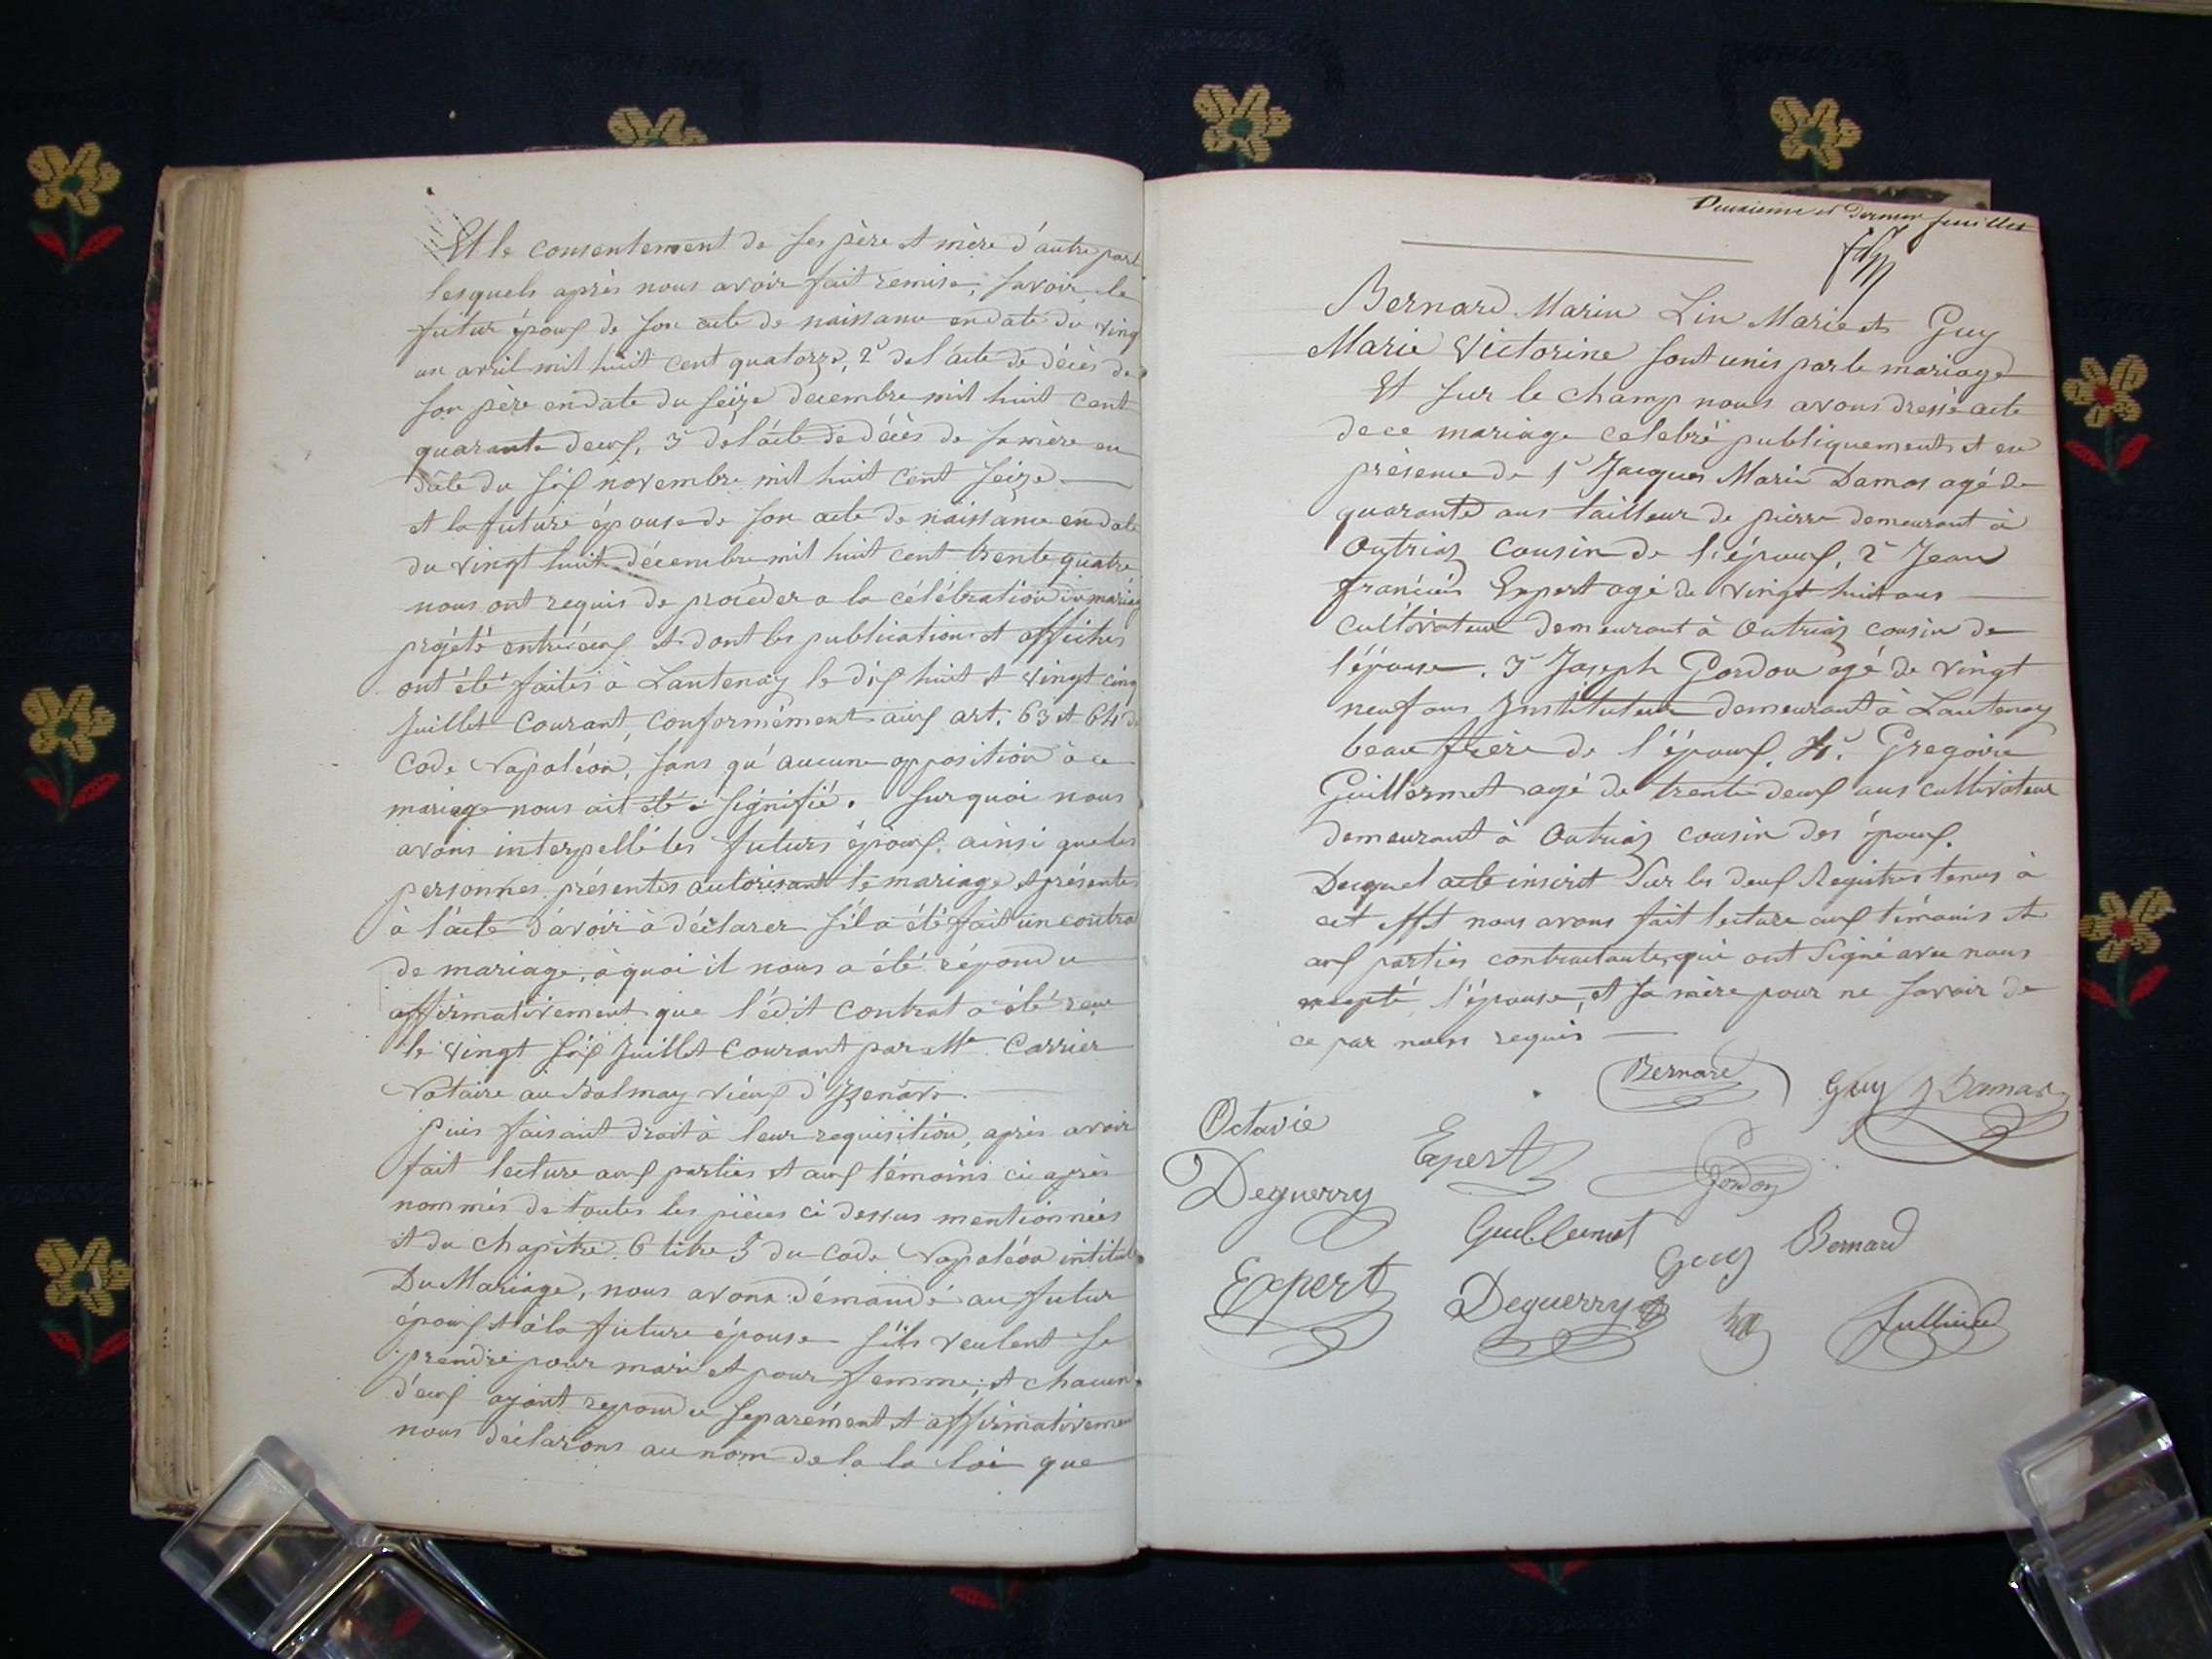 Et le consentement de ses père et mère d'autre part
lesquels après nous avoir fait remise, savoir, le
futur époux de son acte de naissance en date du vingt
un avril mil huit cent quatorze, 2° de l'acte de décès de
son père en date du seize decembre mil huit cent
quarante deux, 3° de l'acte de décès de sa mère en
date du six novembre mil huit cent seize
et la future épouse de son acte de naissance en date
du vingt huit décembre mil huit cent trente quatre
nous ont requis de procéder a la célébration du mariage
projeté entr'eux et dont les publications et affiches
ont été faites à Lantenay le dix huit et vingt cinq
Juillet courant, conformément aux art. 63 et 64 du
Code Napoléon, sans qu'aucune opposition à ce
mariage nous ait été signifié. Sur quoi nous
avons interpellé les futurs époux, ainsi que les
personnes présentes autorisant le mariage et présentes
à l'acte d'avoir à déclarer s'il a été fait un contrat
de mariage, à quoi il nous a été répondu
affirmativement que l'édit contrat a été reçu
le vingt six Juillet courant par Me Carrier
Notaire au Balmay vieux d'Izenave.
Puis faisant droit à leur requisition, après avoir
fait lecture aux parties et aux témoins ci après
nommés de toutes les pièces ci dessus mentionnées
et du chapitre 6 titre 5 du code Napoléon intitulé
Du Mariage, nous avons démandé au futur
époux et à la future épouse s'ils veulent se
prendre pour mari et pour femme; et chacun
d'eux ayant repondu separément et affirmativement
nous déclarons au nom de la la loi que
Deuxième et dernier feuillet
Bernard Marin Lin Marie et Guy
Marie Victorine sont unis par le mariage
Et sur le champ nous avons dressé acte
de ce mariage celebré publiquement et en
présence de 1° Jacques Marie Damas agé de
quarante ans tailleur de pierre demeurant à
Outriaz cousin de l'époux, 2° Jean
francois Expert agé de vingt huit ans
cultivateur demeurant à Outriaz cousin de
l'épouse. 3° Joseph Gordon agé de vingt
neuf ans Instituteur demeurant à Lantenay
beau frère de l'époux. 4°. Gregoire
Guillermet agé de trente deux ans cultivateur
demeurant à Outriaz cousin des époux.
Duquel acte inscrit sur les deux Registres tenus à
cet effet nous avons fait lecture aux témoins et
aux parties contractantes qui ont signé avec nous
excepté l'épouse, et sa mère pour ne savoir de
ce par nous requis
Bernard Guy J Damas
Octavie Expert Gordon
Deguerry Guillermet Guy Bernard
Expert Deguerry Jullien